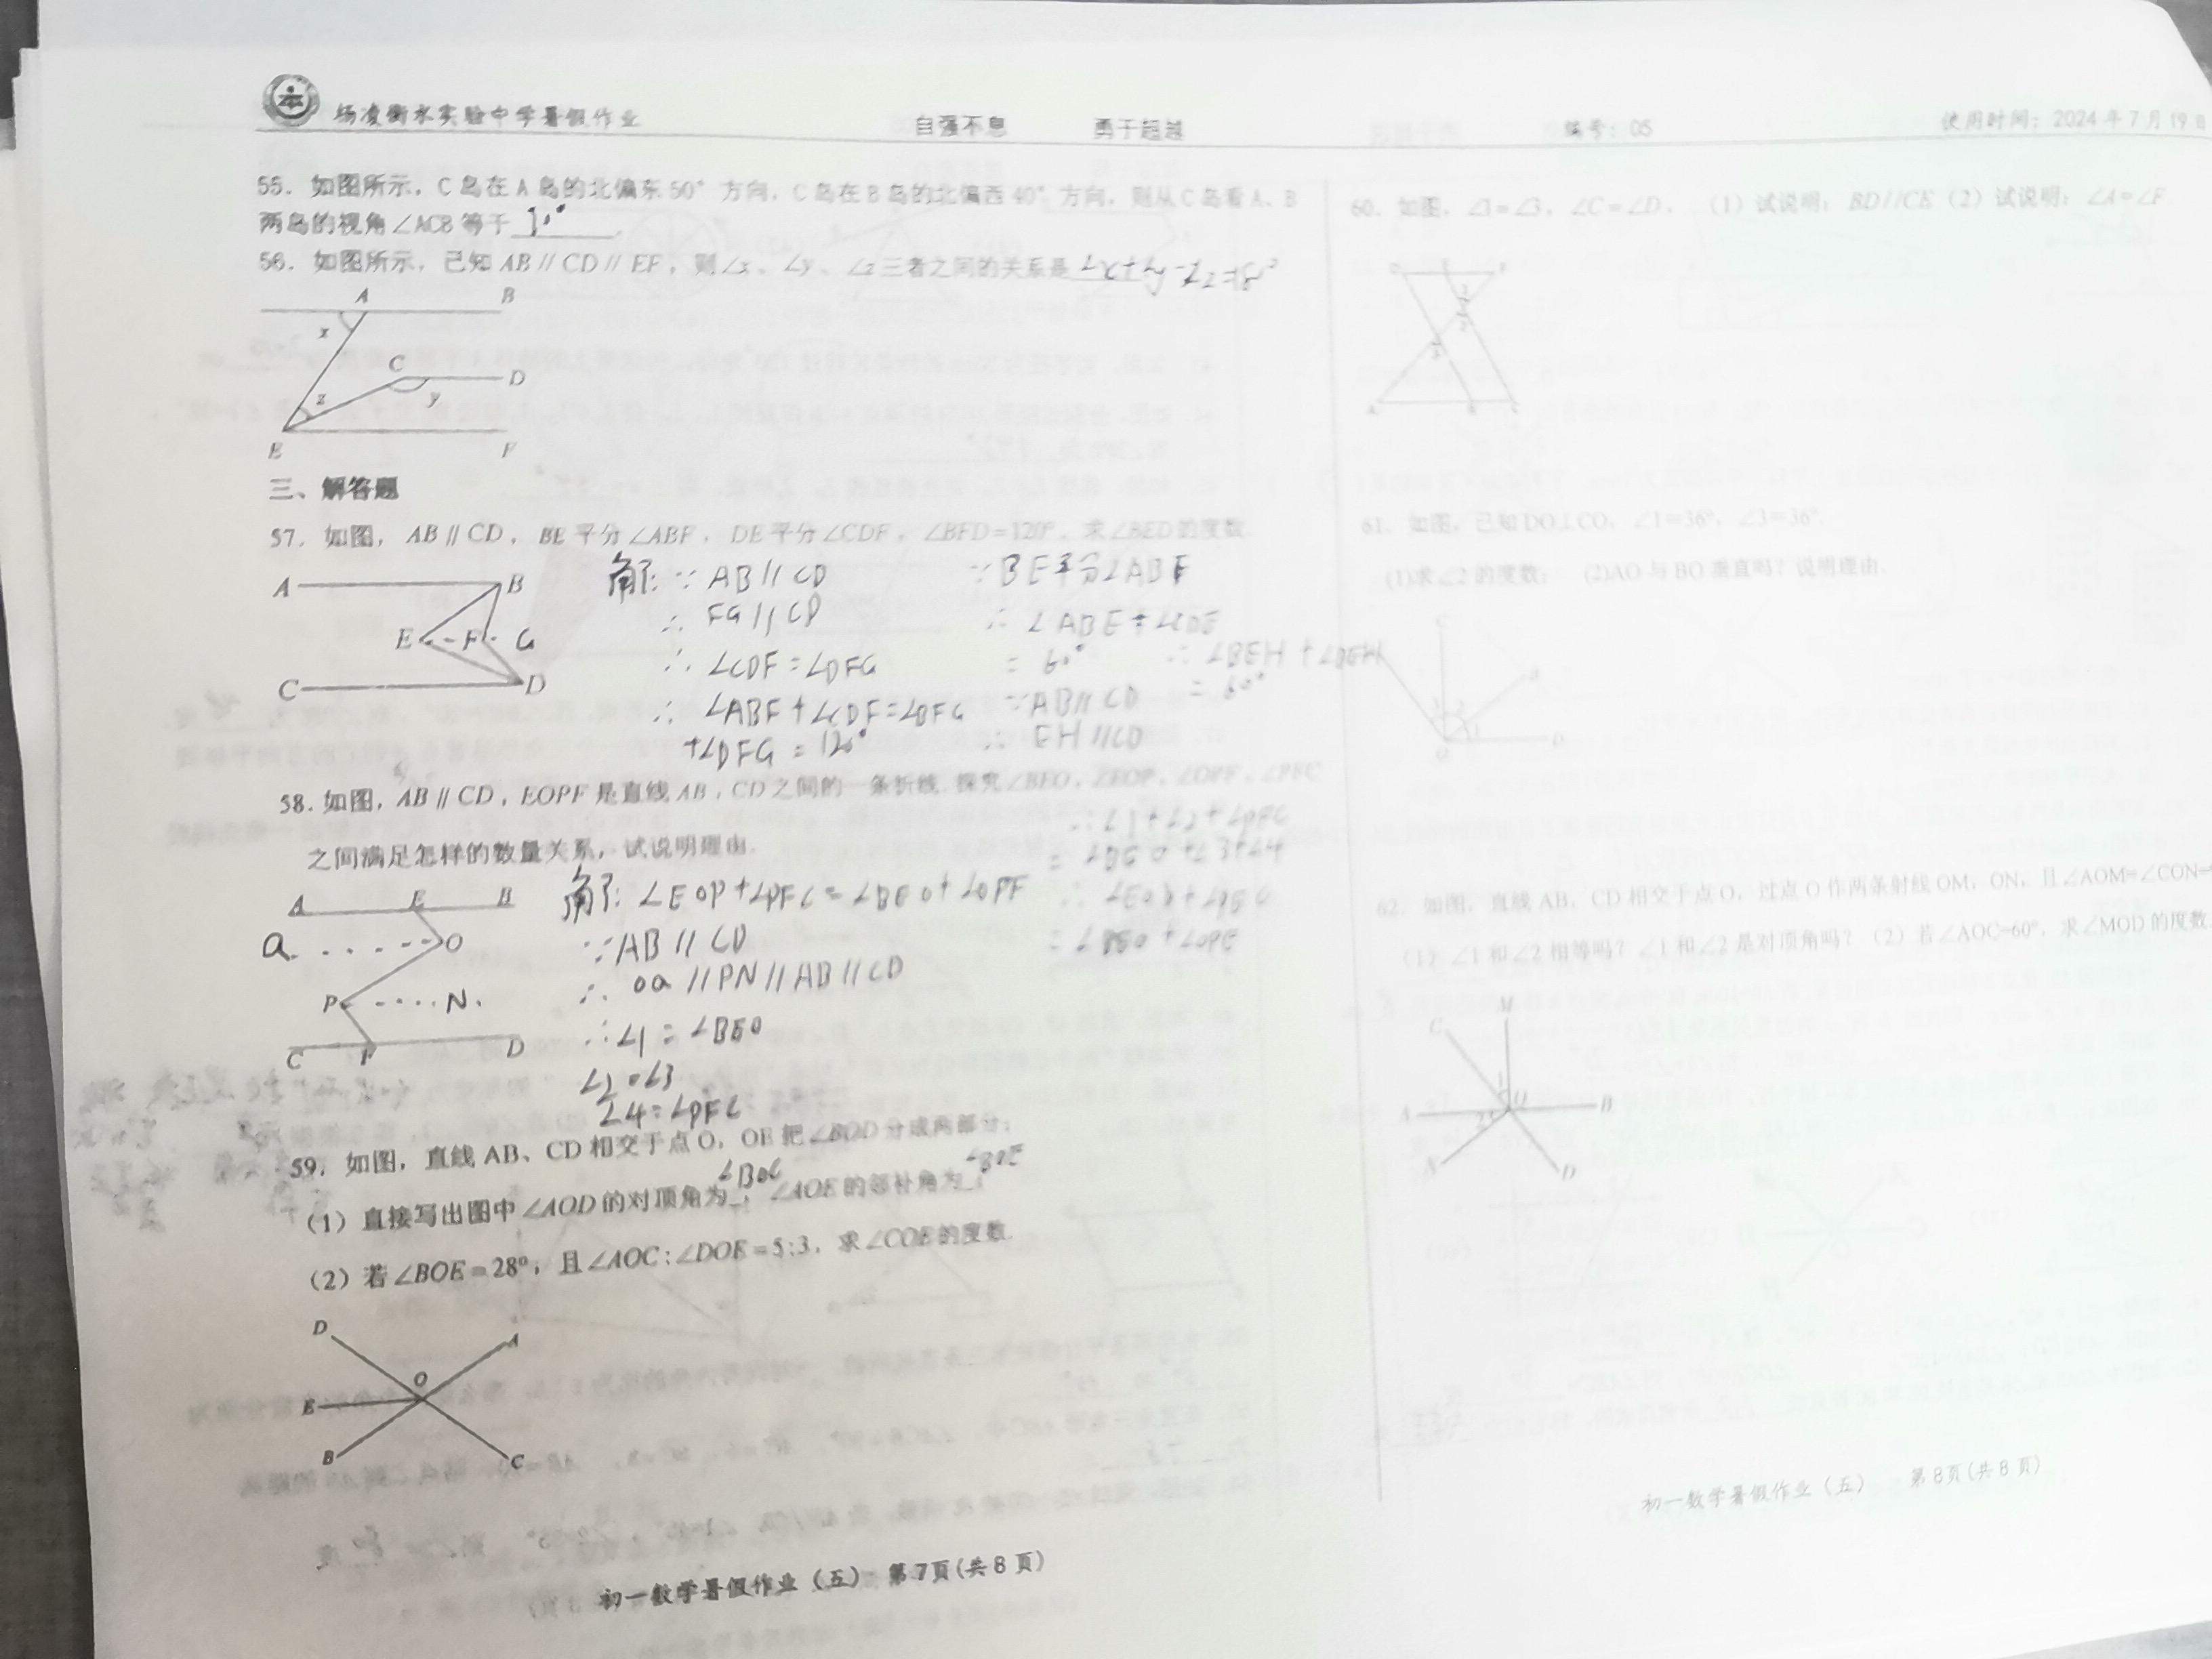 杨凌衡水实验中学暑假作业 自强不息 勇于超越 编号：05 使用时间：2024年7月19日
55．如图所示，C岛在A岛的北偏东50°方向，C岛在B岛的北偏西40°方向，则从C岛看A、B
两岛的视角∠ACB等于
56．如图所示，已知AB∥CD∥EF，则∠x、∠y、∠z三者之间的关系是∠x+∠y-∠z=180°
A B
x
C D
z y
E F
三、解答题
57．如图，AB∥CD，BE平分∠ABF，DE平分∠CDF，∠BFD=120°，求∠BED的度数.
A B
E F G
C D
解:∵AB//CD
∴FG//CD
∴∠CDF=∠DFG
∴∠ABF+∠CDF=∠BFG
+∠DFG=120°
∵BE平分∠ABF
∴∠ABE+∠CDE
=60°
∵AB//CD
∴EH//CD
∴∠BEH+∠DEH
=60°
58．如图，AB∥CD，EOPF是直线AB，CD之间的一条折线.探究∠BEO，∠EOP，∠OPF，∠PFC
之间满足怎样的数量关系，试说明理由.
A E B
a O
P N
C F D
解:∠EOP+∠PFC=∠BEO+∠OPF
∵AB//CD
∴oa//PN//AB//CD
∴∠1=∠BEO
∠2=∠3
∠4=∠PFC
∴∠1+∠2+∠PFC
=∠BEO+∠3+∠4
∴∠EOP+∠PFC
=∠BEO+∠OPF
59．如图，直线AB、CD相交于点O，OE把∠BOD分成两部分；
（1）直接写出图中∠AOD的对顶角为∠BOC，∠AOE的邻补角为∠BOE；
（2）若∠BOE=28°，且∠AOC:∠DOE=5:3，求∠COE的度数.
D A
O
E
B C
初一数学暑假作业（五） 第7页(共8页)
60．如图，∠1=∠3，∠C=∠D，（1）试说明：BD//CE（2）试说明：∠A=∠F.
61．如图，已知DO⊥CO，∠1=36°，∠3=36°.
(1)求∠2的度数； (2)AO与BO垂直吗？说明理由.
62．如图，直线AB，CD相交于点O，过点O作两条射线OM，ON，且∠AOM=∠CON=
（1）∠1和∠2相等吗？∠1和∠2是对顶角吗？（2）若∠AOC=60°，求∠MOD的度数.
M
C
1
A O B
2
N D
初一数学暑假作业（五） 第8页(共8页)